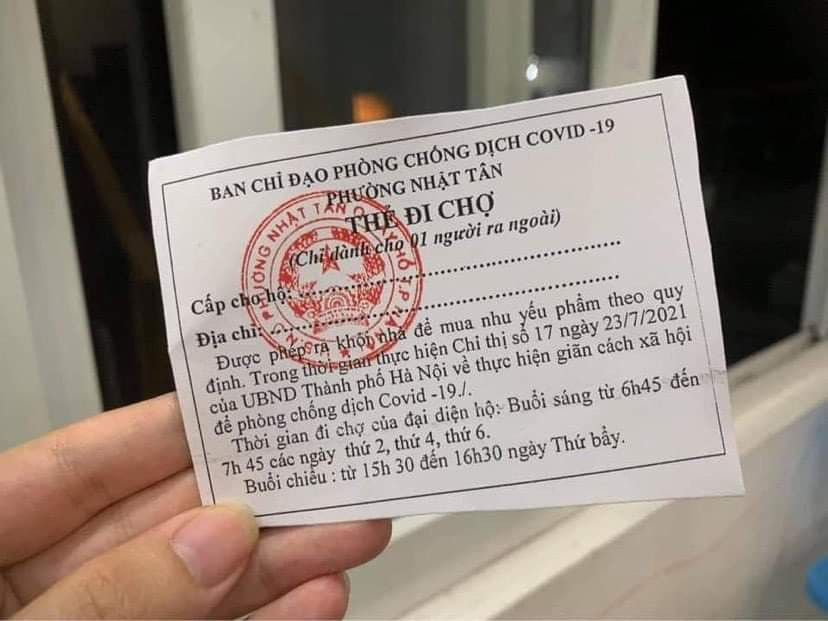 BAN CHỈ ĐẠO PHÒNG CHỐNG DỊCH COVID -19
PHƯỜNG NHẬT TÂN
THẺ ĐI CHỢ
(Chỉ dành cho 01 người ra ngoài)
Cấp cho hộ:..........................................
Địa chỉ:..........................................
Được phép ra khỏi nhà để mua nhu yếu phẩm theo quy
định. Trong thời gian thực hiện Chỉ thị số 17 ngày 23/7/2021
của UBND Thành phố Hà Nội về thực hiện giãn cách xã hội
để phòng chống dịch Covid -19./.
Thời gian đi chợ của đại diện hộ: Buổi sáng từ 6h45 đến
7h 45 các ngày thứ 2, thứ 4, thứ 6.
Buổi chiều : từ 15h 30 đến 16h30 ngày Thứ bẩy.
PHƯỜNG NHẬT TÂN